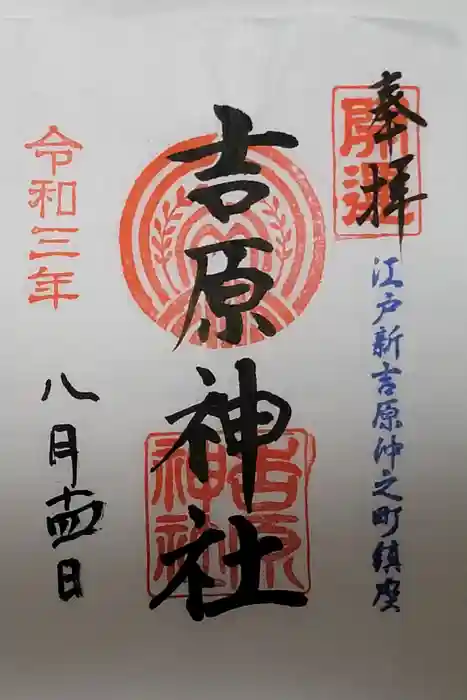 奉拝
開運
江戸新吉原仲之町鎮座
吉原神社
吉原神社
令和三年
八月十四日